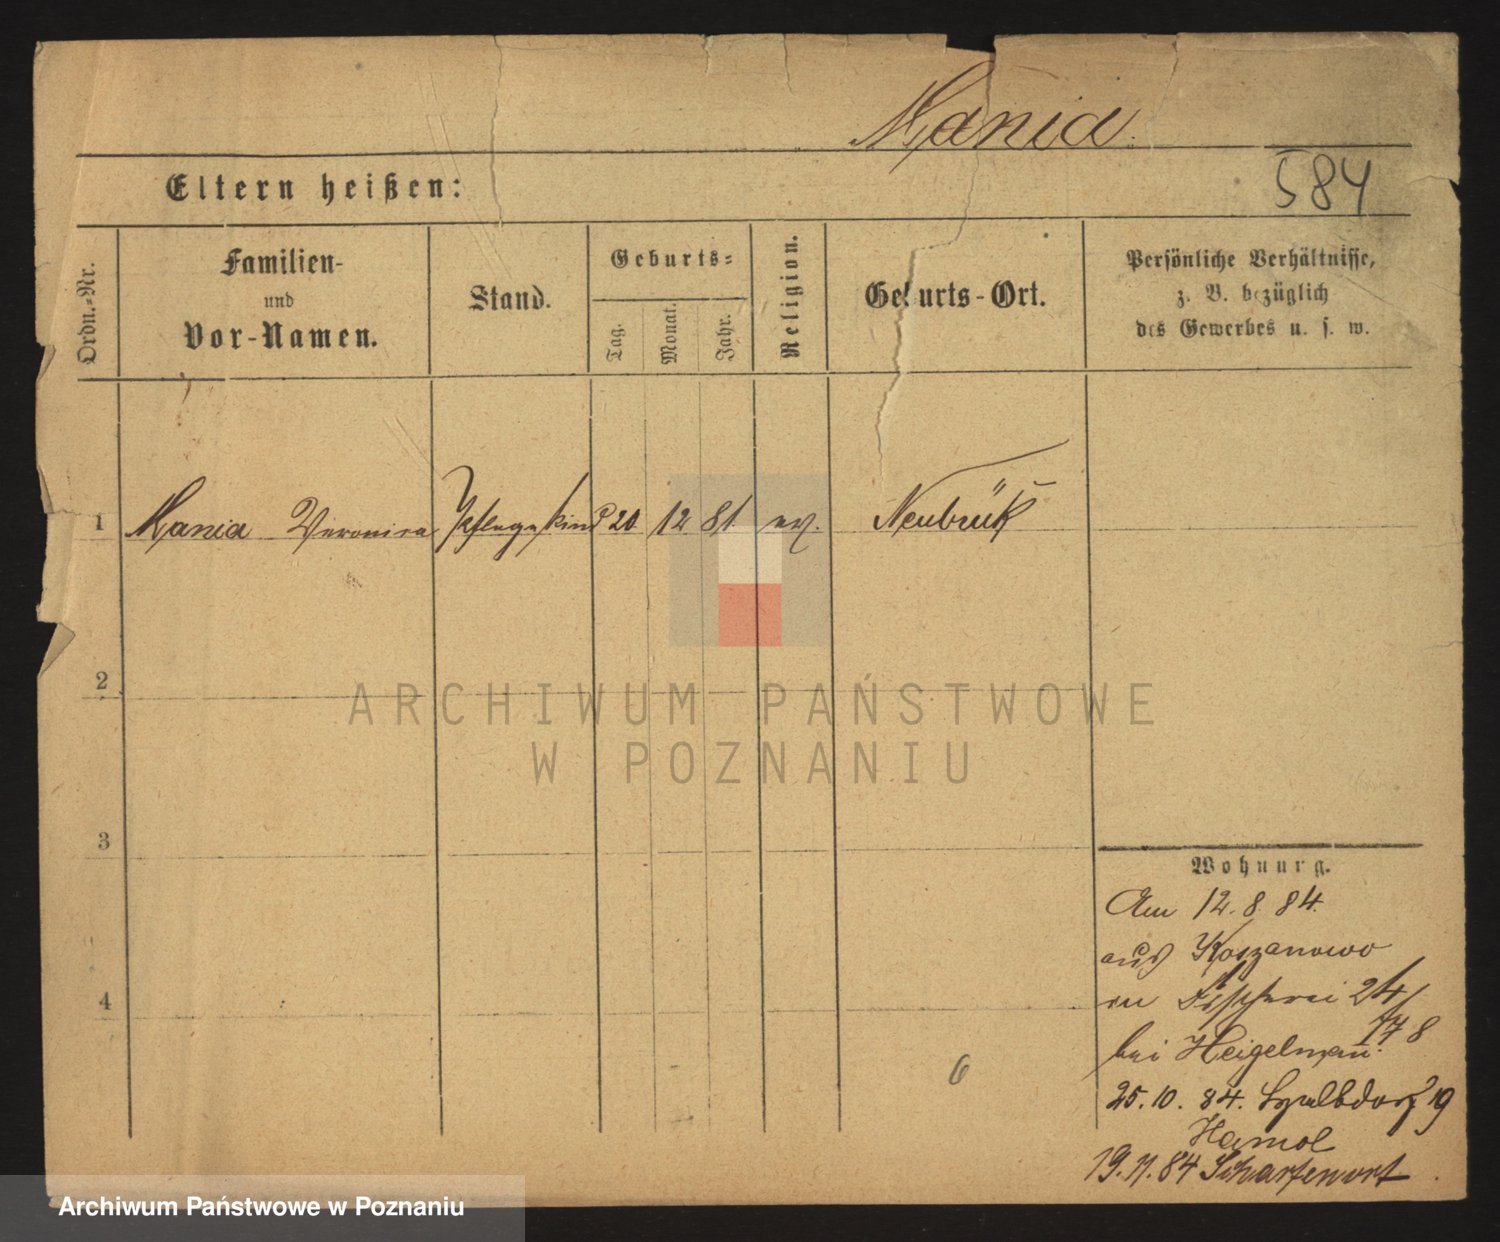 Mania
584
Eltern heißen:
Ordn.-Nr.
Familien-
und
Vor-Namen.
Stand.
Geburts-
Tag.
Monat.
Jahr.
Religion.
Geburts-Ort.
Persönliche Verhältnisse,
z. B. bezüglich
des Gewerbes u. s. w.
1 Mania Veronica Pflegekind 20 12 81. Neubrück
2
ARCHIWUM PAŃSTWOWE
W POZNANIU
3
Wohnung.
Am 12.8.84.
aus Koszanowo
Fischerei 24/
17 8
bei Heigelmann.
6
25.10.84. 19
Hamol
19.11.84 Scharfenort
4
Archiwum Państwowe w Poznaniu